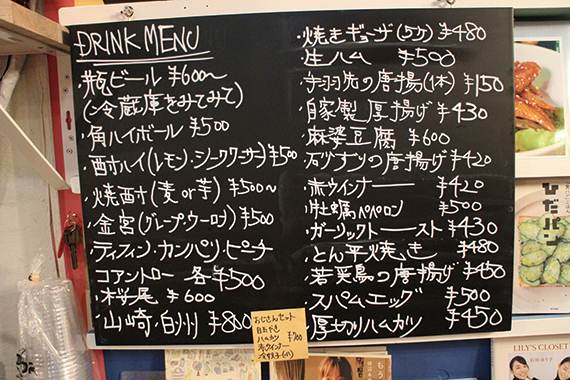 DRINK MENU
・瓶ビール ¥600〜
(冷蔵庫をみてみて)
・角ハイボール ¥500
・酎ハイ(レモン・シークワーサー) ¥500
・焼酎(麦or芋) ¥500〜
・金宮(グレープ・ウーロン) ¥500
・ティフィン・カンパリ・ピーチ
コアントロー 各¥500
・桜尾 ¥600
・山崎・白州 ¥800
・焼きギョーザ(5ケ) ¥480
・生ハム ¥500
・手羽先の唐揚(1本) ¥150
・自家製厚揚げ ¥430
・麻婆豆腐 ¥600
・砂ずりの唐揚げ ¥420
・赤ウインナー ¥420
・牡蠣ペペロン ¥500
・ガーリックトースト ¥430
・とん平焼き ¥480
・若菜鶏の唐揚げ ¥450
・スパムエッグ ¥500
・厚切りハムカツ ¥450
おじさんセット
ハムカツ
赤ウインナー
¥700
ひだパン
LILY'S CLOSET